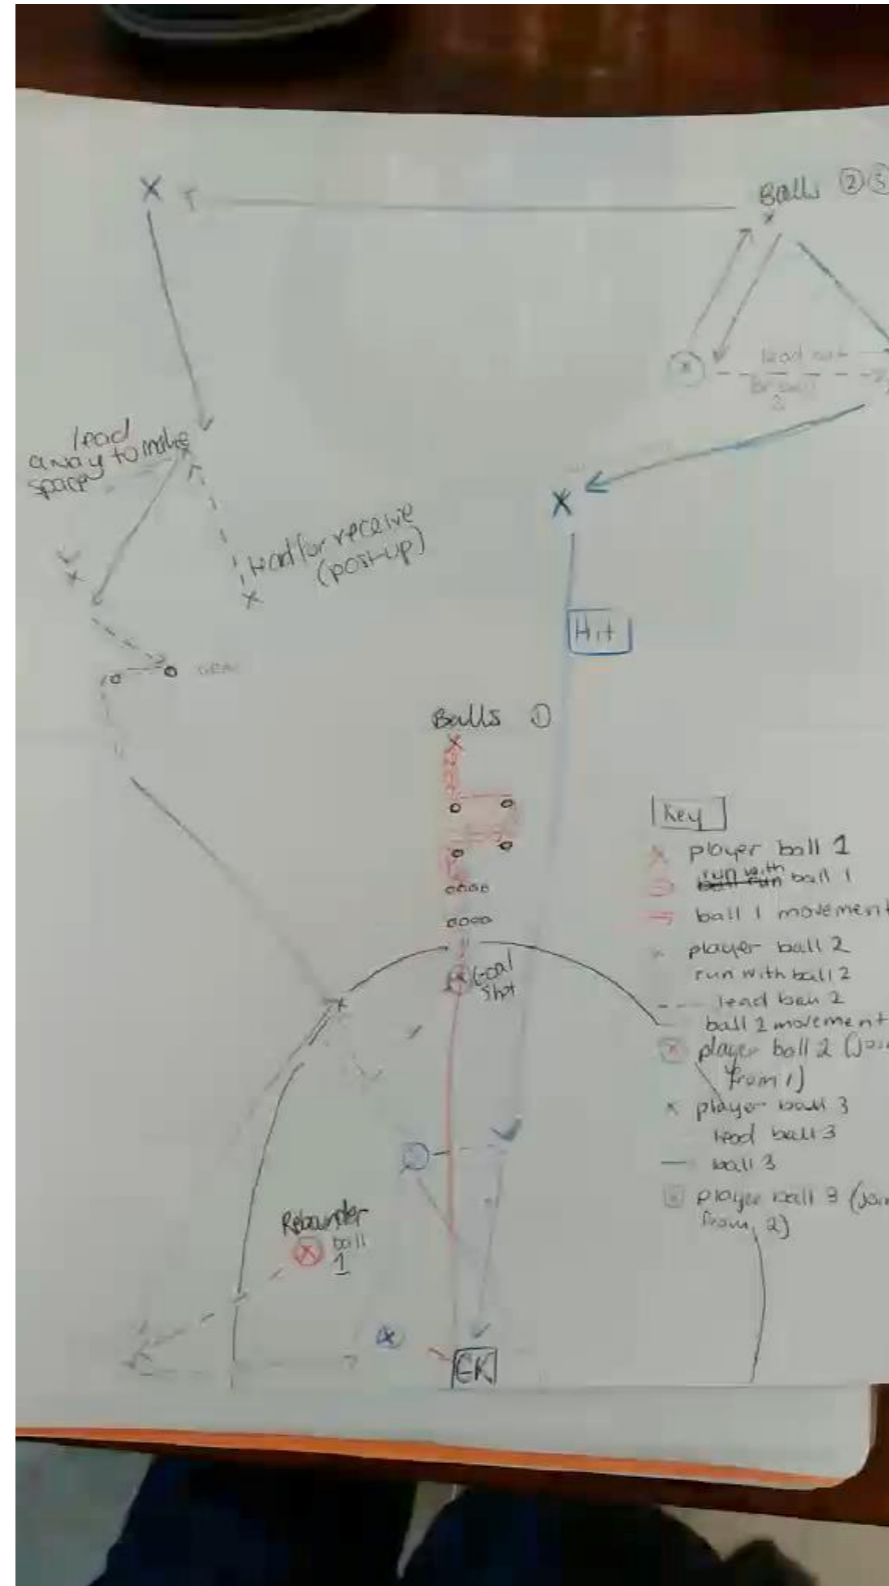 Balls ②③
lead out
for ball
3
lead
away to make
space
lead for receive
(post-up)
Hit
Balls ①
Goal
shot
Rebounder
ball
1
GK
Key
player ball 1
run with ball 1
ball 1 movement
player ball 2
run with ball 2
lead ball 2
ball 2 movement
player ball 2 (join
from 1)
player ball 3
lead ball 3
ball 3
player ball 3 (join
from 2)